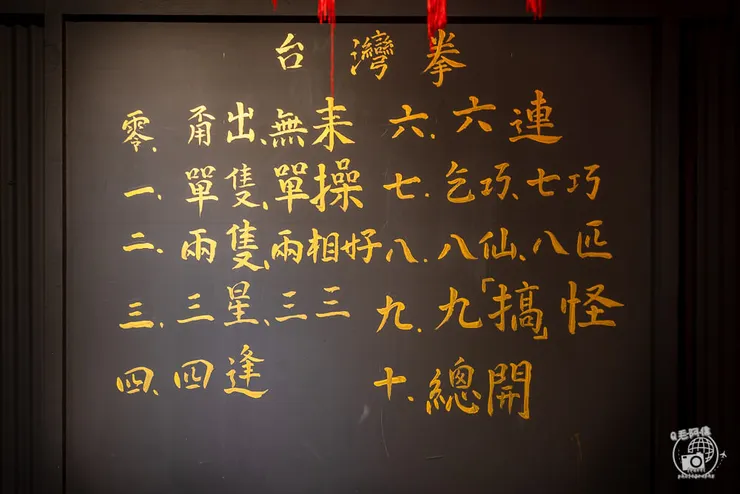 台灣拳
零、甬出、無未
一、單隻、單操
二、兩隻、兩相好
三、三星、三三
四、四逢
六、六連
七、乞巧、七巧
八、八仙、八匹
九、九「搞」怪
十、總開
Q毛阿偉
photography